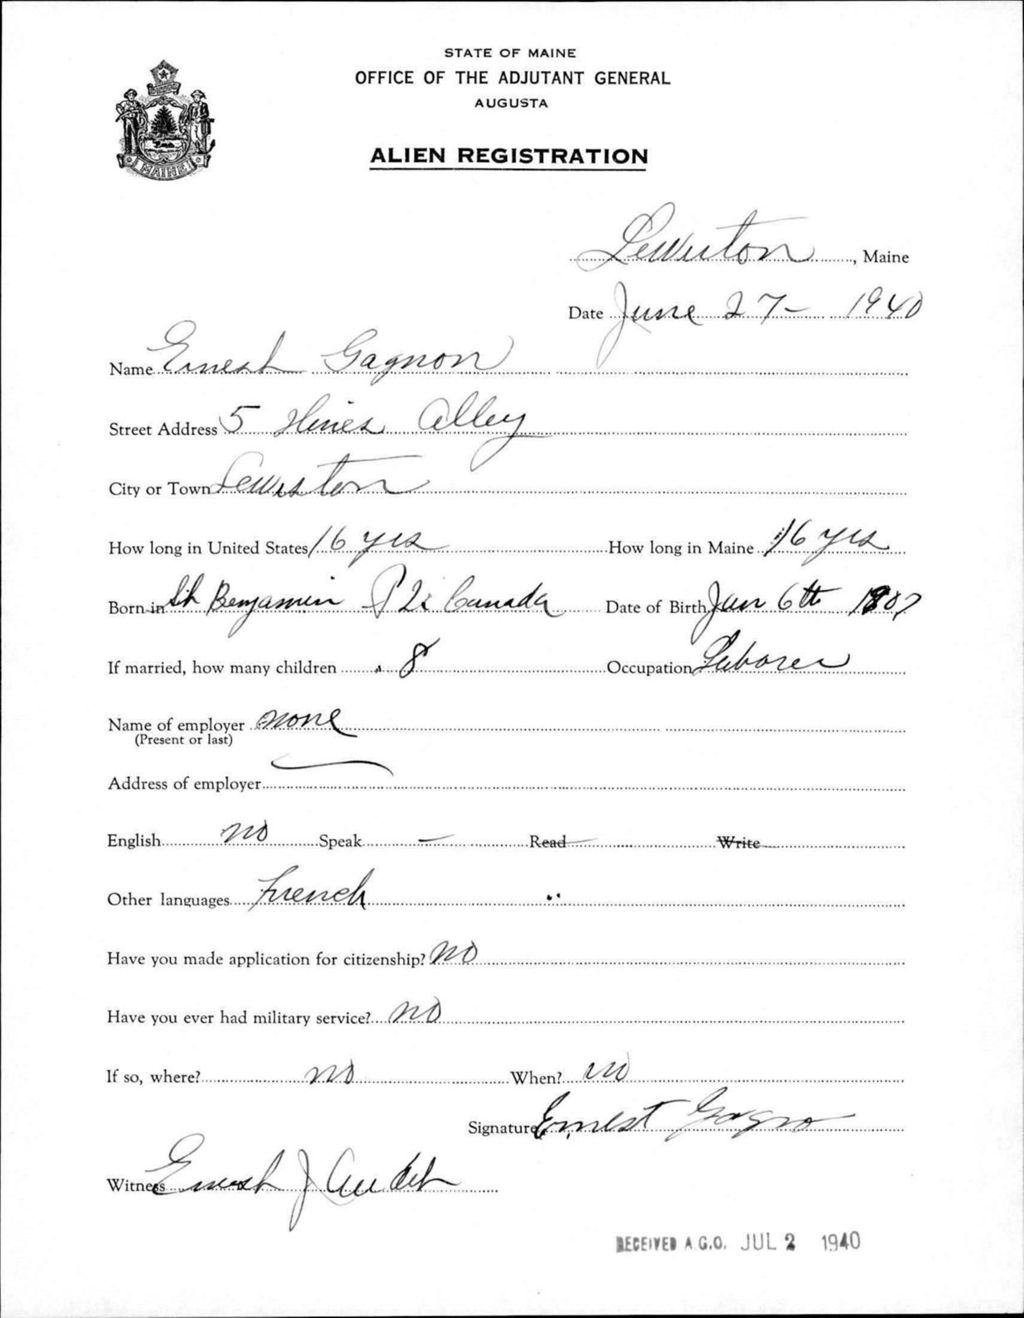 STATE OF MAINE
OFFICE OF THE ADJUTANT GENERAL
AUGUSTA
ALIEN REGISTRATION
MAINE
Lewiston, Maine
Date June 27- 1940
Name Ernest Gagnon
Street Address 5 Hines Alley
City or Town Lewiston
How long in United States 16 yrs How long in Maine 16 yrs
Born in St Benjamin P 2c Canada Date of Birth Jan 6th
If married, how many children 8 Occupation Laborer
Name of employer none
(Present or last)
Address of employer
English no Speak - Read Write
Other languages French
Have you made application for citizenship? No
Have you ever had military service? No
If so, where? no When? no
Signature Ernest Gagno
Witness Ernest J Audet
RECEIVED A.G.O. JUL 2 1940